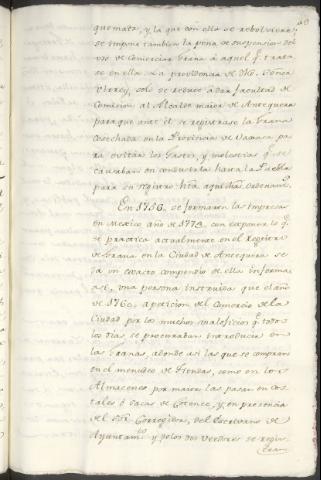 quemata, y la que con ella se rebolviere
se impone tambien la pena de suspencion del
uso de Comerciar Grana á aquel qe. trata
se en ella. La providencia de dho. Señor
Virrey, solo se reduce á dar facultad de
Comision al Alcalde maior de Antequera
para que ante él se registrase la Grana
cosechada en la Provincia de Oaxaca pa
ra evitar los gastos, y molestias qe. se
causaban en conducirla hasta la Puebla
para su registro hta. aqui dhas. ordenanz.
En 1756, se formaron las impresas
en Mexico año de 1773, con exponer lo qe.
se practica actualmente en el Registro
de Grana en la Ciudad de Antequera se
da un exacto compendio de ellas informa
asi, una persona instruida que el año
de 1760, a peticion del Comercio de la
Ciudad por los muchos maleficios qe. todos
los dias se procuraban introducir en
las Granas, adonde asi las que se compraron
en el menudeo de Tiendas, como en los
Almacenes por maior las pasen en cos
tales ó sacas de Cotence, y en presencia
del Sor. Corregidor, del Escribano de
Ayuntamto. y de los dos Veedores se regis
tran